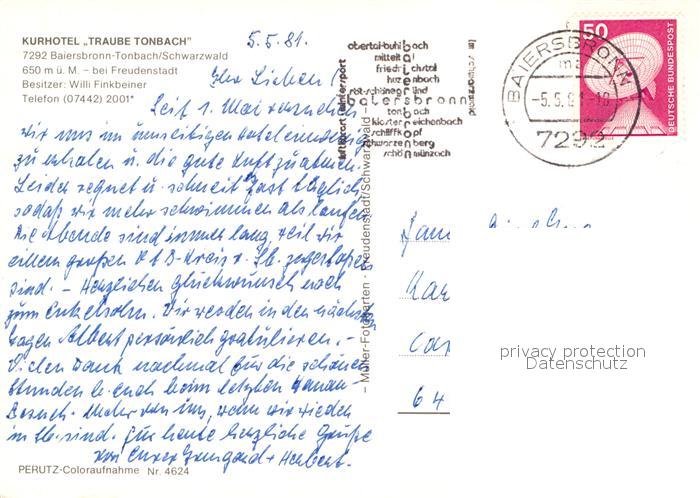 KURHOTEL „TRAUBE TONBACH"
7292 Baiersbronn-Tonbach/Schwarzwald
650 m ü. M. – bei Freudenstadt
Besitzer: Willi Finkbeiner
Telefon (07442) 2001*
5.5.81.
Ihr Lieben!
Seit 1. Mai versuchen
wir uns im umseitigen Hotel
zu erholen u. die gute Luft zu atmen.
Leider regnet u. schneit fast täglich
sodaß wir mehr schwimmen als laufen
Die Abende sind immer lang, weil wir
einem großen
sind. – Herzlichen Glückwunsch noch
zum Enkelsohn. Wir werden in den nächsten
Tagen Albert persönlich gratulieren. –
Vielen Dank nochmal für die schönen
Stunden b. euch beim letzten Hanau
Besuch. Mehr von uns, wenn wir wieder
in sind. Für heute herzliche Grüße
von Eurer Irmgard + Herbert.
PERUTZ-Coloraufnahme Nr. 4624
Freudenstadt/Schwarzwald
luftkurort
wintersport
im schwarzwald
obertal-buhlbach
mitteltal
friedrichstal
huzenbach
röt-schönegründ
baiersbronn
tonbach
klosterreichenbach
schiffkopf
schwarzenberg
schönmünzach
BAIERSBRONN
-5.5.81-18
7292
50
DEUTSCHE BUNDESPOST
64
privacy protection
Datenschutz